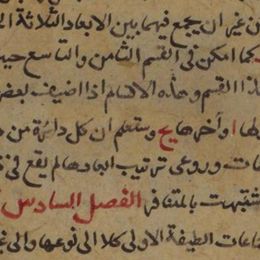 من غير ان يجمع فيهما بين الابعاد الثلاثة ال
كما امكن فى القسم الثامن والتاسع حيث
ذا القسم وهذه الاقسام اذا اضيف بعض
ها ا وآخرها يح وستعلم ان كل دائرة من د
ات وروعى ترتيب ابعادها لم يقع فى
شتبهت بالمتنافر الفصل السادس
اعات الطبقة الاولى كلا الى نوعها والى غ